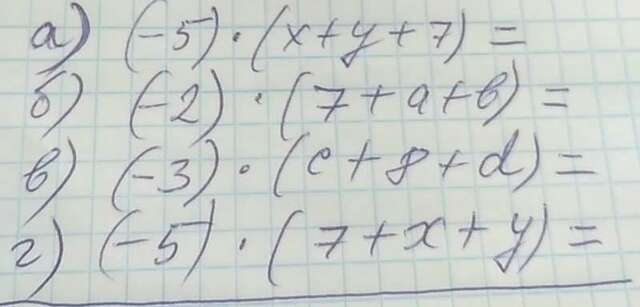 а) (-5) · (x + y + 7) =
б) (-2) · (7 + a + b) =
в) (-3) · (c + 8 + d) =
г) (-5) · (7 + x + y) =